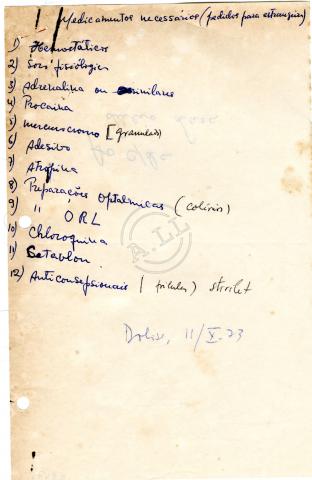 Medicamentos necessários (pedidos para estrangeiro)
1) Hemostáticos
2) Soro fisiológico
3) Adrenalina ou similares
4) Procaina
5) mercurocromo [granulado]
6) Adesivo
7) Atropina
8) Preparações Oftalmicas (colirios)
9) " " ORL
10) Chloroquina
11) Setavlon
12) Anticonsepsionais ( pilulas) sterilet
A.LL
Dolisie, 11/X-73